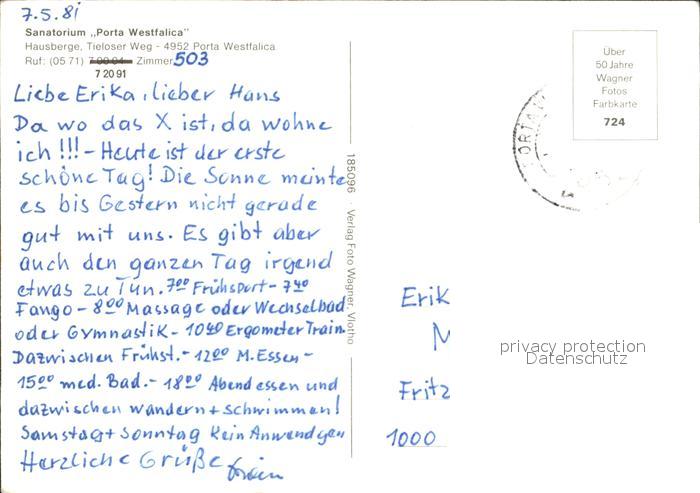 7.5.81
Sanatorium „Porta Westfalica"
Hausberge, Tieloser Weg - 4952 Porta Westfalica
Ruf: (05 71) Zimmer 503
7 20 91
Liebe Erika, lieber Hans
Da wo das X ist, da wohne
ich!!! - Heute ist der erste
schöne Tag! Die Sonne meinte
es bis Gestern nicht gerade
gut mit uns. Es gibt aber
auch den ganzen Tag irgend
etwas zu Tun. 7⁰⁰ Frühsport - 7⁴⁰
Fango - 8⁰⁰ Massage oder Wechselbad
oder Gymnastik - 10⁴⁰ Ergometer Train.
Dazwischen Frühst. - 12⁰⁰ M. Essen -
15⁰⁰ med. Bad. - 18⁰⁰ Abendessen und
dazwischen wandern + schwimmen!
Samstag + Sonntag kein Anwendgen
Herzliche Grüße
185096 · Verlag Foto Wagner, Vlotho
Über
50 Jahre
Wagner
Fotos
Farbkarte
724
PORTA
Erik
M
Fritz
1000
privacy protection
Datenschutz